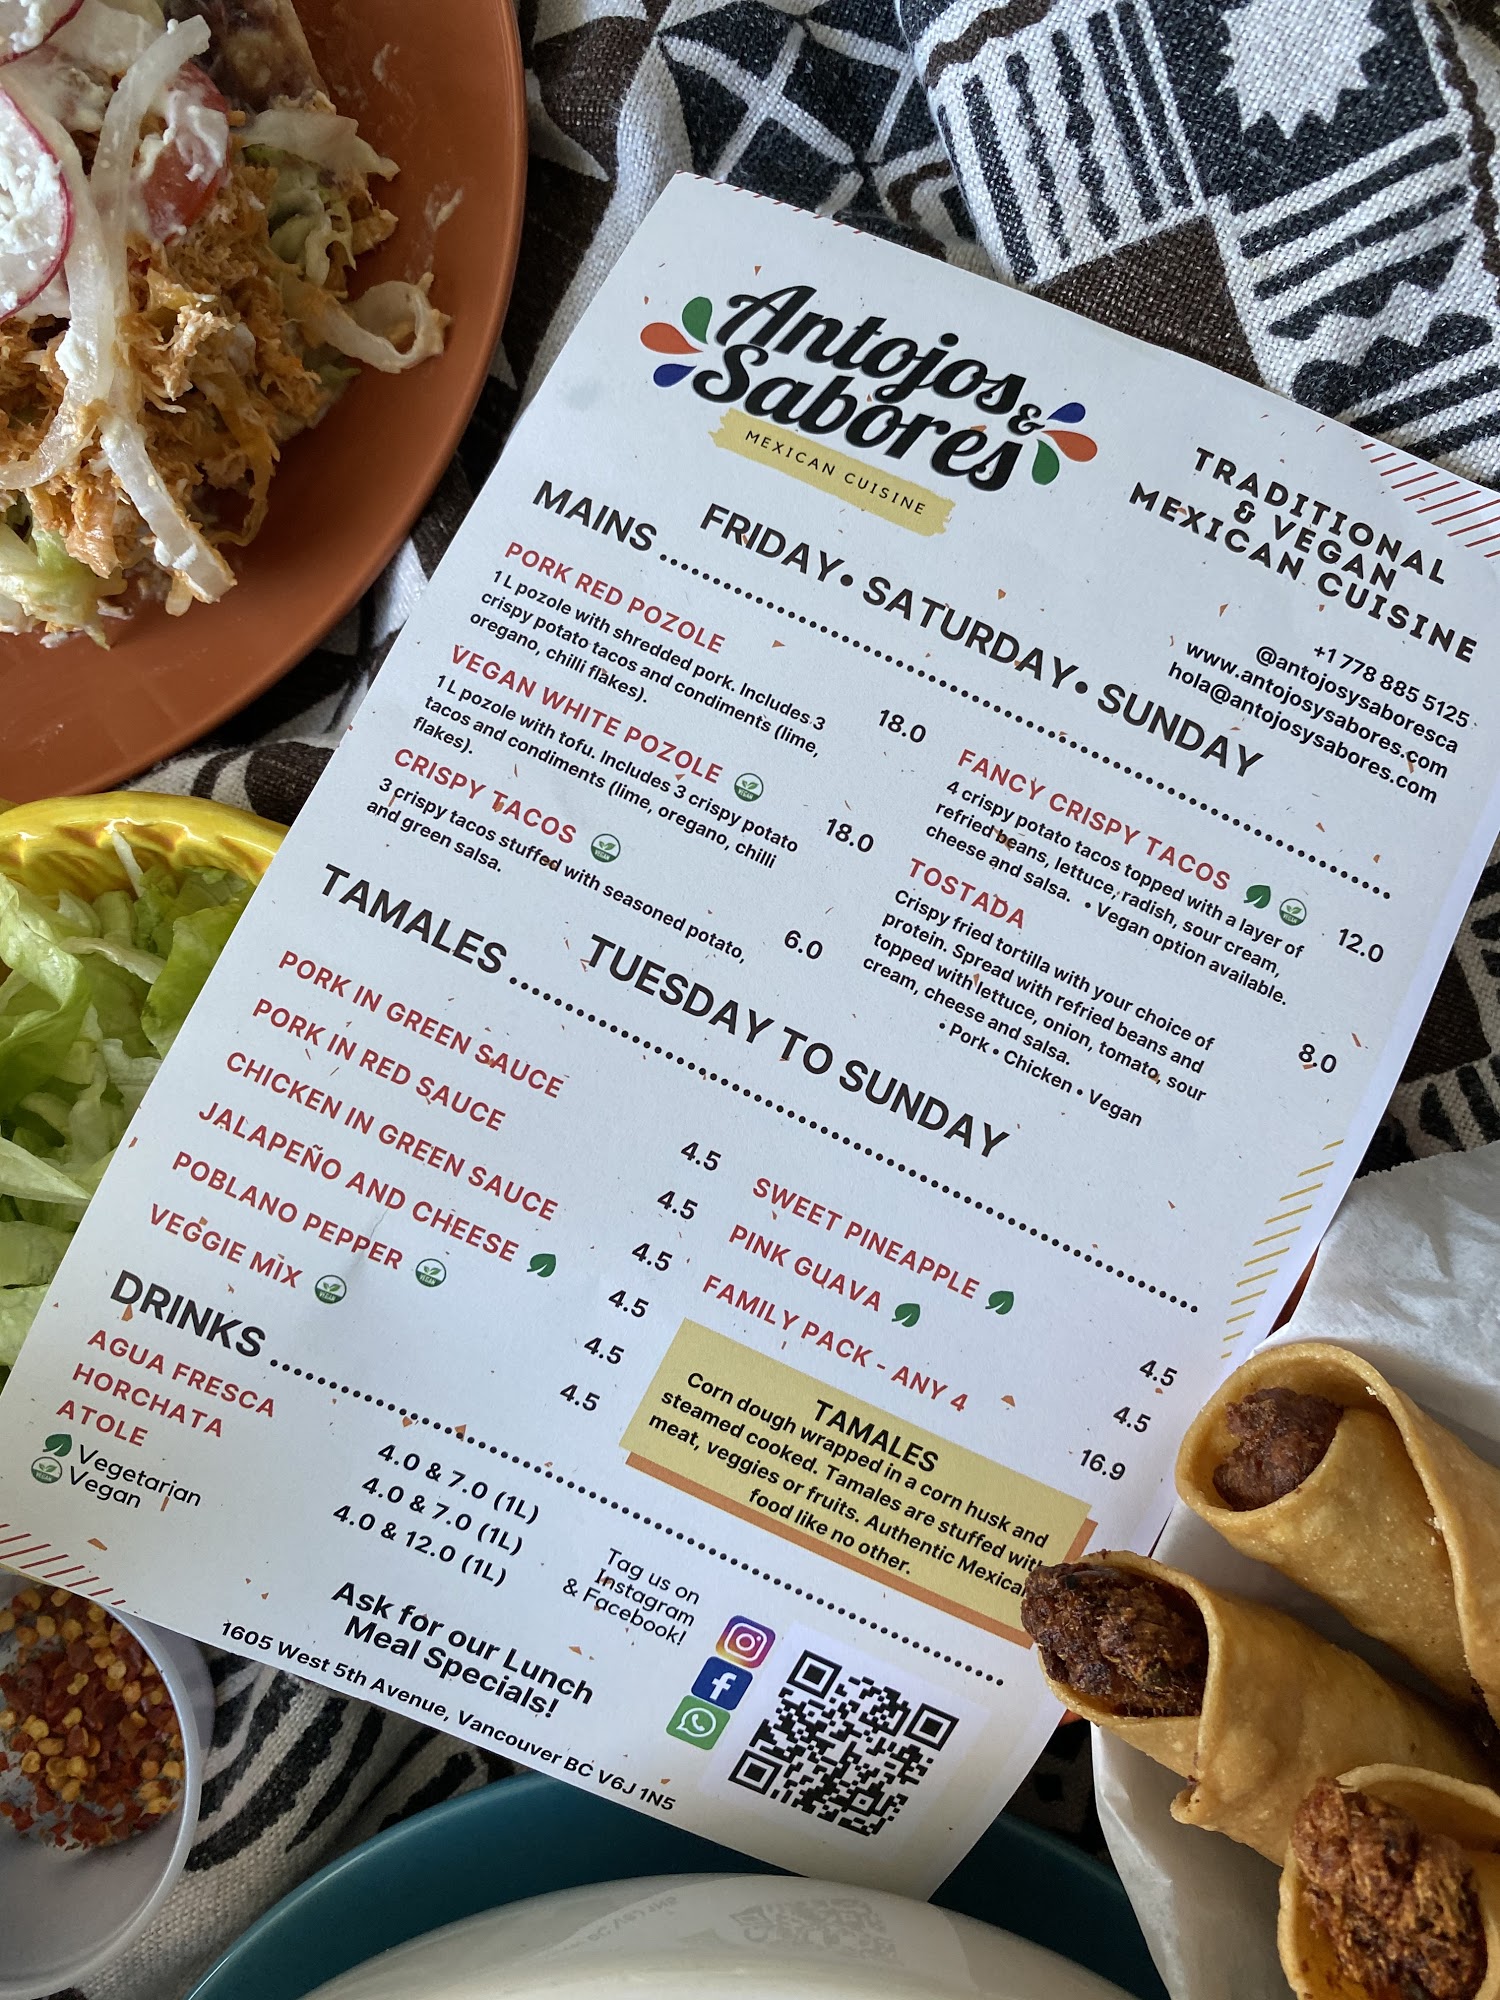 Antojos &
Sabores
MEXICAN CUISINE
TRADITIONAL
& VEGAN
MEXICAN CUISINE
+1 778 885 5125
@antojosysaboresca
www.antojosysabores.com
hola@antojosysabores.com
FRIDAY • SATURDAY • SUNDAY
MAINS
PORK RED POZOLE
1 L pozole with shredded pork. Includes 3
crispy potato tacos and condiments (lime,
oregano, chilli flakes).
18.0
VEGAN WHITE POZOLE
1 L pozole with tofu. Includes 3 crispy potato
tacos and condiments (lime, oregano, chilli
flakes).
18.0
CRISPY TACOS
3 crispy tacos stuffed with seasoned potato,
and green salsa.
6.0
FANCY CRISPY TACOS
4 crispy potato tacos topped with a layer of
refried beans, lettuce, radish, sour cream,
cheese and salsa. • Vegan option available.
12.0
TOSTADA
Crispy fried tortilla with your choice of
protein. Spread with refried beans and
topped with lettuce, onion, tomato, sour
cream, cheese and salsa.
• Pork • Chicken • Vegan
8.0
TUESDAY TO SUNDAY
TAMALES
PORK IN GREEN SAUCE 4.5
PORK IN RED SAUCE 4.5
CHICKEN IN GREEN SAUCE 4.5
JALAPEÑO AND CHEESE 4.5
POBLANO PEPPER VEGAN 4.5
VEGGIE MIX VEGAN 4.5
SWEET PINEAPPLE 4.5
PINK GUAVA 4.5
FAMILY PACK - ANY 4 16.9
TAMALES
Corn dough wrapped in a corn husk and
steamed cooked. Tamales are stuffed with
meat, veggies or fruits. Authentic Mexican
food like no other.
DRINKS
AGUA FRESCA 4.0 & 7.0 (1L)
HORCHATA 4.0 & 7.0 (1L)
ATOLE 4.0 & 12.0 (1L)
Vegetarian
Vegan
Tag us on
Instagram
& Facebook!
Ask for our Lunch
Meal Specials!
1605 West 5th Avenue, Vancouver BC V6J 1N5